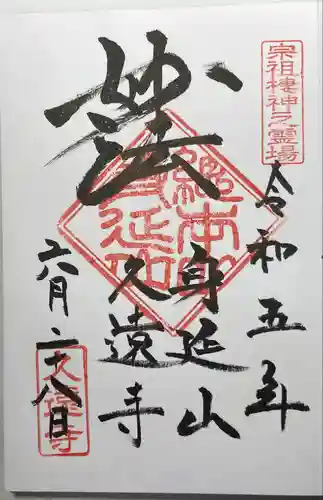 宗祖棲神之霊場
令和五年
妙法
身延山
久遠寺
六月二十八日
久遠寺